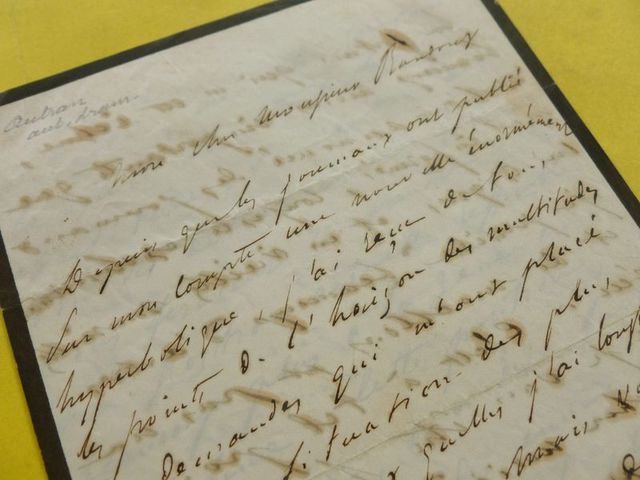 Autran
aut. dram.
Mon cher Monsieur
Depuis que les journaux ont publié
sur mon compte une nouvelle énormément
hyperbolique, j'ai reçu de tous
les points de l'horizon des multitudes
demandes qui m'ont placé
situation des plus
quelles j'ai
mais